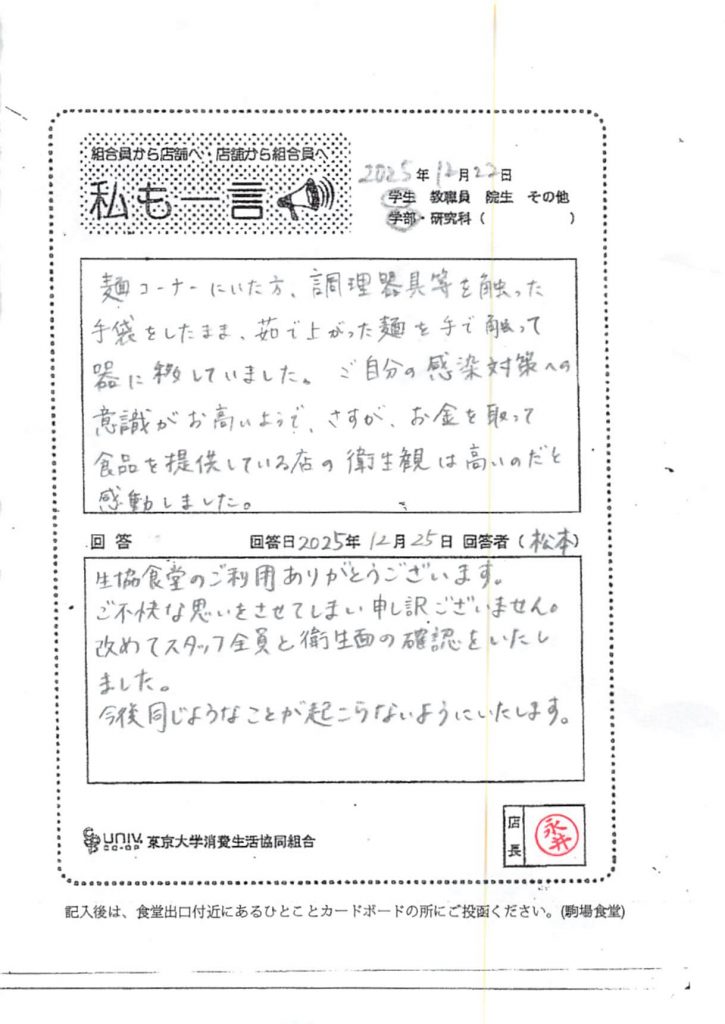 組合員から店舗へ・店舗から組合員へ
私も一言
2025年12月22日
学生 教職員 院生 その他
学部・研究科( )
麺コーナーにいた方、調理器具等を触った
手袋をしたまま、茹で上がった麺を手で触って
器に移していました。ご自分の感染対策への
意識がお高いようで、さすが、お金を取って
食品を提供している店の衛生観は高いのだと
感動しました。
回答 回答日2025年12月25日 回答者(松本)
生協食堂のご利用ありがとうございます。
ご不快な思いをさせてしまい申し訳ございません。
改めてスタッフ全員と衛生面の確認をいたし
ました。
今後同じようなことが起こらないようにいたします。
UNIV. CO-OP 東京大学消費生活協同組合
店長 永井
記入後は、食堂出口付近にあるひとことカードボードの所にご投函ください。(駒場食堂)